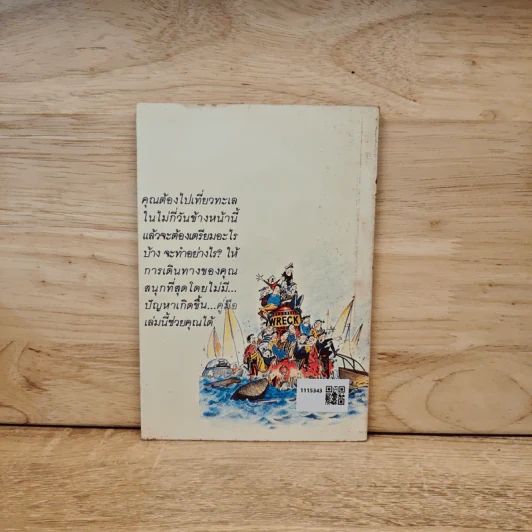 คุณต้องไปเที่ยวทะเล
ในไม่กี่วันข้างหน้านี้
แล้วจะต้องเตรียมอะไร
บ้าง จะทำอย่างไร? ให้
การเดินทางของคุณ
สนุกที่สุดโดยไม่มี...
ปัญหาเกิดขึ้น...คู่มือ
เล่มนี้ช่วยคุณได้
WRECK
1115343